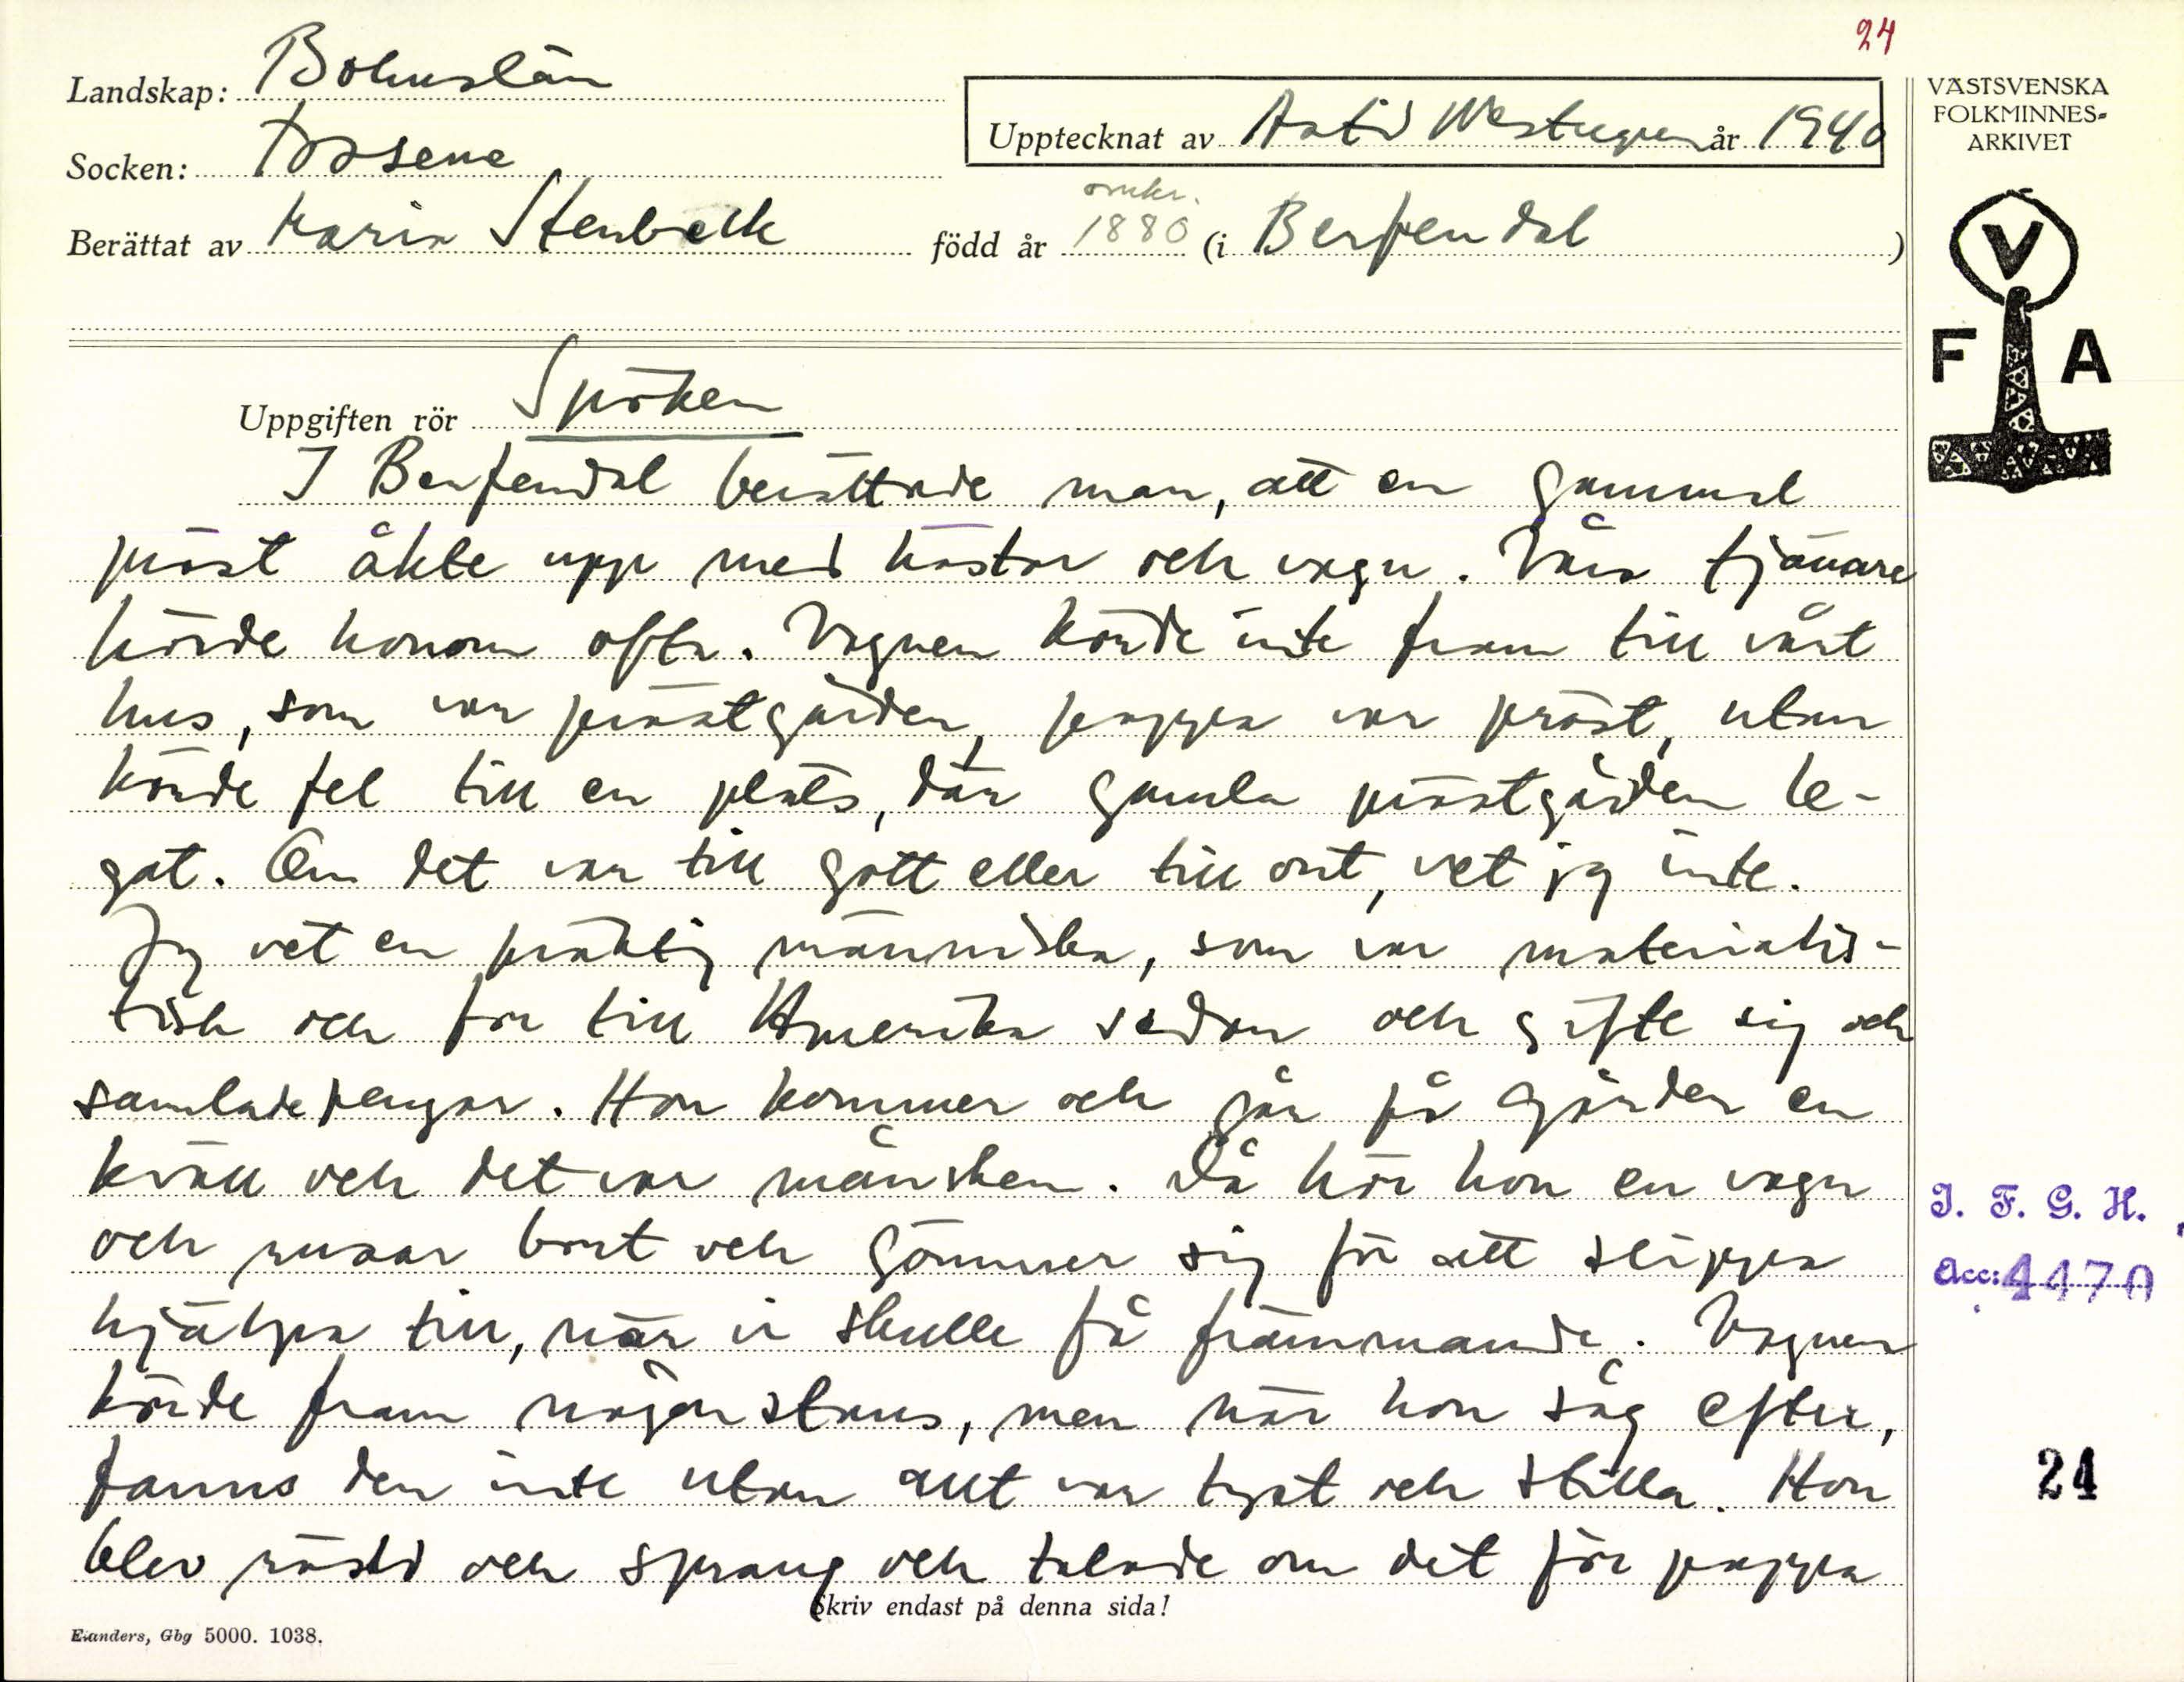 24
Landskap: Bohuslän
Socken: Tossene
Upptecknat av Astid Westergren år 1940
VÄSTSVENSKA
FOLKMINNES-
ARKIVET
Berättat av Maria Stenbeck född år omkr. 1880 (i Berfendal )
V
F A
Uppgiften rör Spöken
I Berfendal berättade man, att en gammal
präst åkte upp med hästar och vagn. Våra tjänare
hörde honom ofta. Vagnen körde inte fram till vårt
hus, som var prästgården, pappa var präst, utan
körde fel till en plats, där gamla prästgården le-
gat. Om det var till gott eller till ont, vet jag inte.
Jag vet en präktig människa, som var materialis-
tisk och for till Amerika sedan och gifte sig och
samlade pengar. Hon kommer och går på gården en
kväll och det var månsken. Då hör hon en vagn
och rusar bort och gömmer sig för att slippa
hjälpa till, när vi skulle få främmande. Vagnen
körde fram någonstans, men när hon såg efter,
fanns den inte utan allt var tyst och stilla. Hon
blev rädd och sprang och talade om det för pappa
I. F. G. H.
Acc: 4470
24
Skriv endast på denna sida!
Elanders, Gbg 5000. 1038.